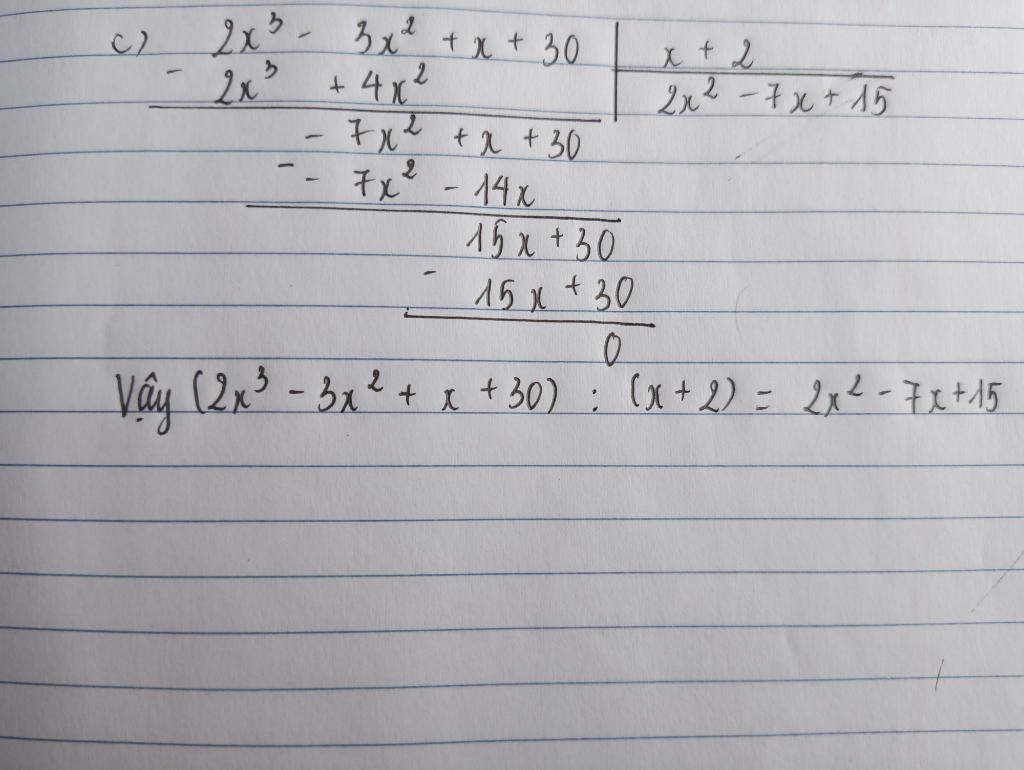 c) 2x³ - 3x² + x + 30 | x + 2
- 2x³ + 4x² | 2x² - 7x + 15
- 7x² + x + 30
- - 7x² - 14x
15x + 30
- 15x + 30
0
Vậy (2x³ - 3x² + x + 30) : (x + 2) = 2x² - 7x + 15